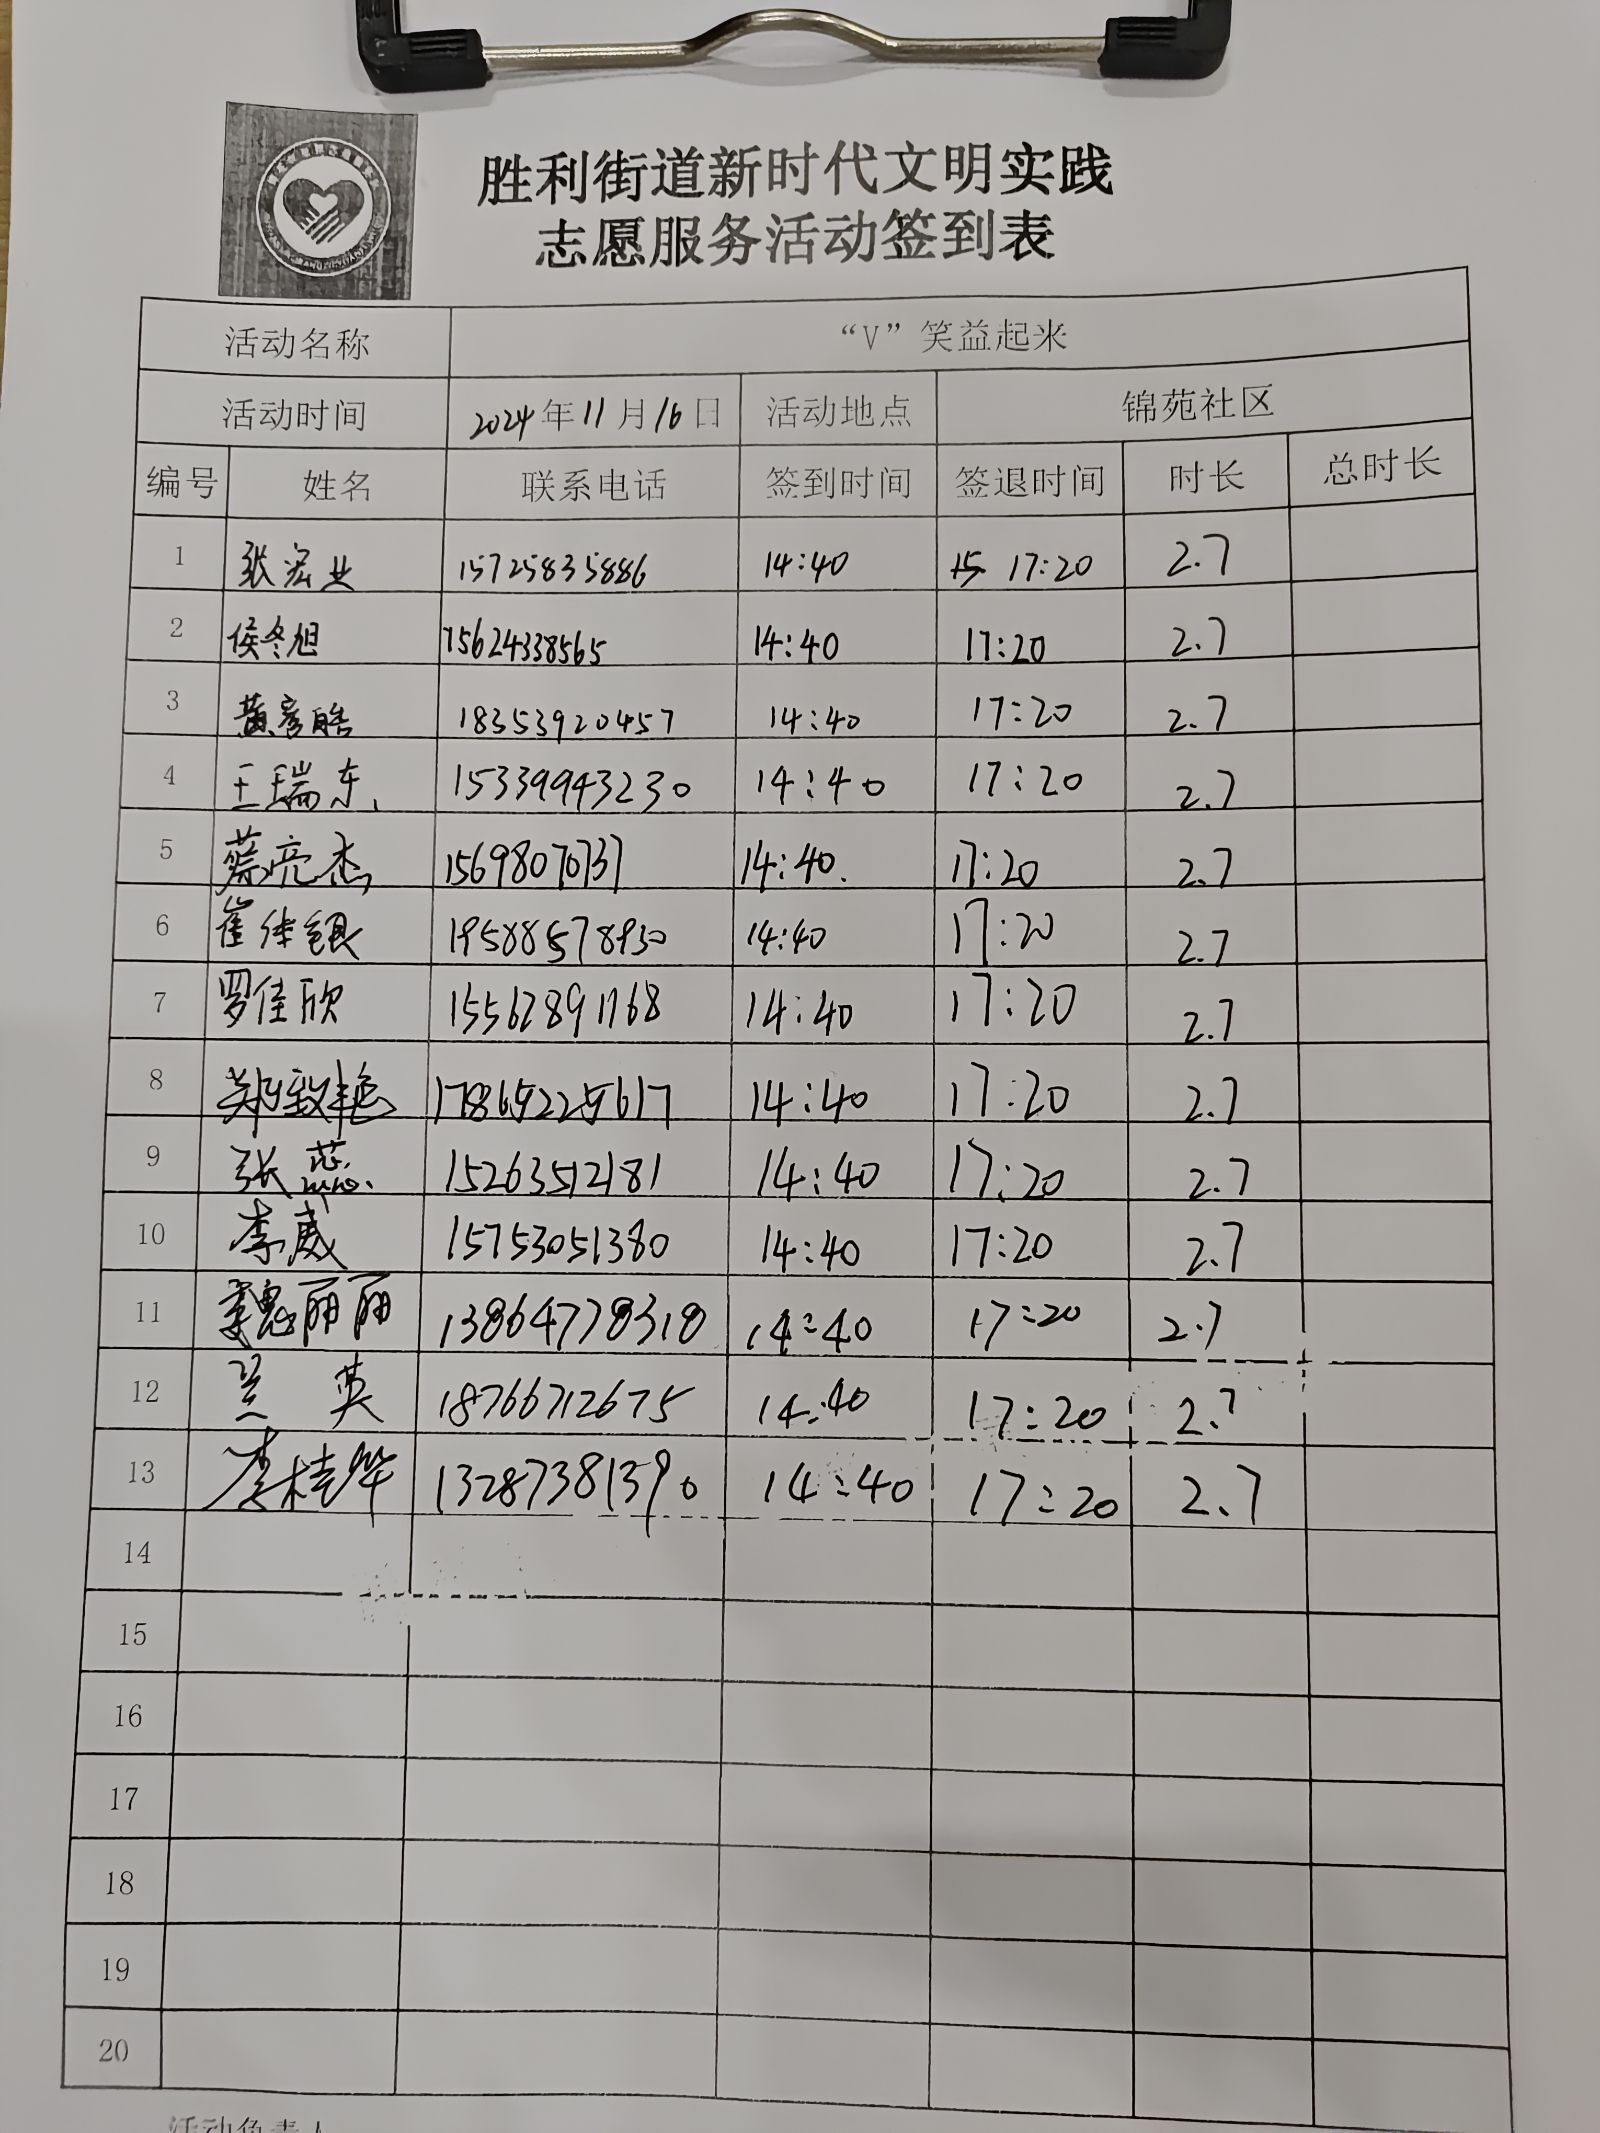 胜利街道新时代文明实践
志愿服务活动签到表
活动名称 “V”笑益起来
活动时间 2024年11月16日 活动地点 锦苑社区
编号 姓名 联系电话 签到时间 签退时间 时长 总时长
1 张宏业 15725835886 14:40 17:20 2.7
2 侯冬旭 15624338565 14:40 17:20 2.7
3 黄彦皓 18353920457 14:40 17:20 2.7
4 王瑞东 15339943230 14:40 17:20 2.7
5 蔡亮杰 15698070737 14:40 17:20 2.7
6 崔佳银 19588578930 14:40 17:20 2.7
7 罗佳欣 15562891168 14:40 17:20 2.7
8 郑致艳 17865225617 14:40 17:20 2.7
9 张蕊 15263512181 14:40 17:20 2.7
10 李威 15753051380 14:40 17:20 2.7
11 魏丽丽 13864778318 14:40 17:20 2.7
12 兰英 18766712675 14:40 17:20 2.7
13 李桂华 13287381390 14:40 17:20 2.7
14
15
16
17
18
19
20
活动负责人